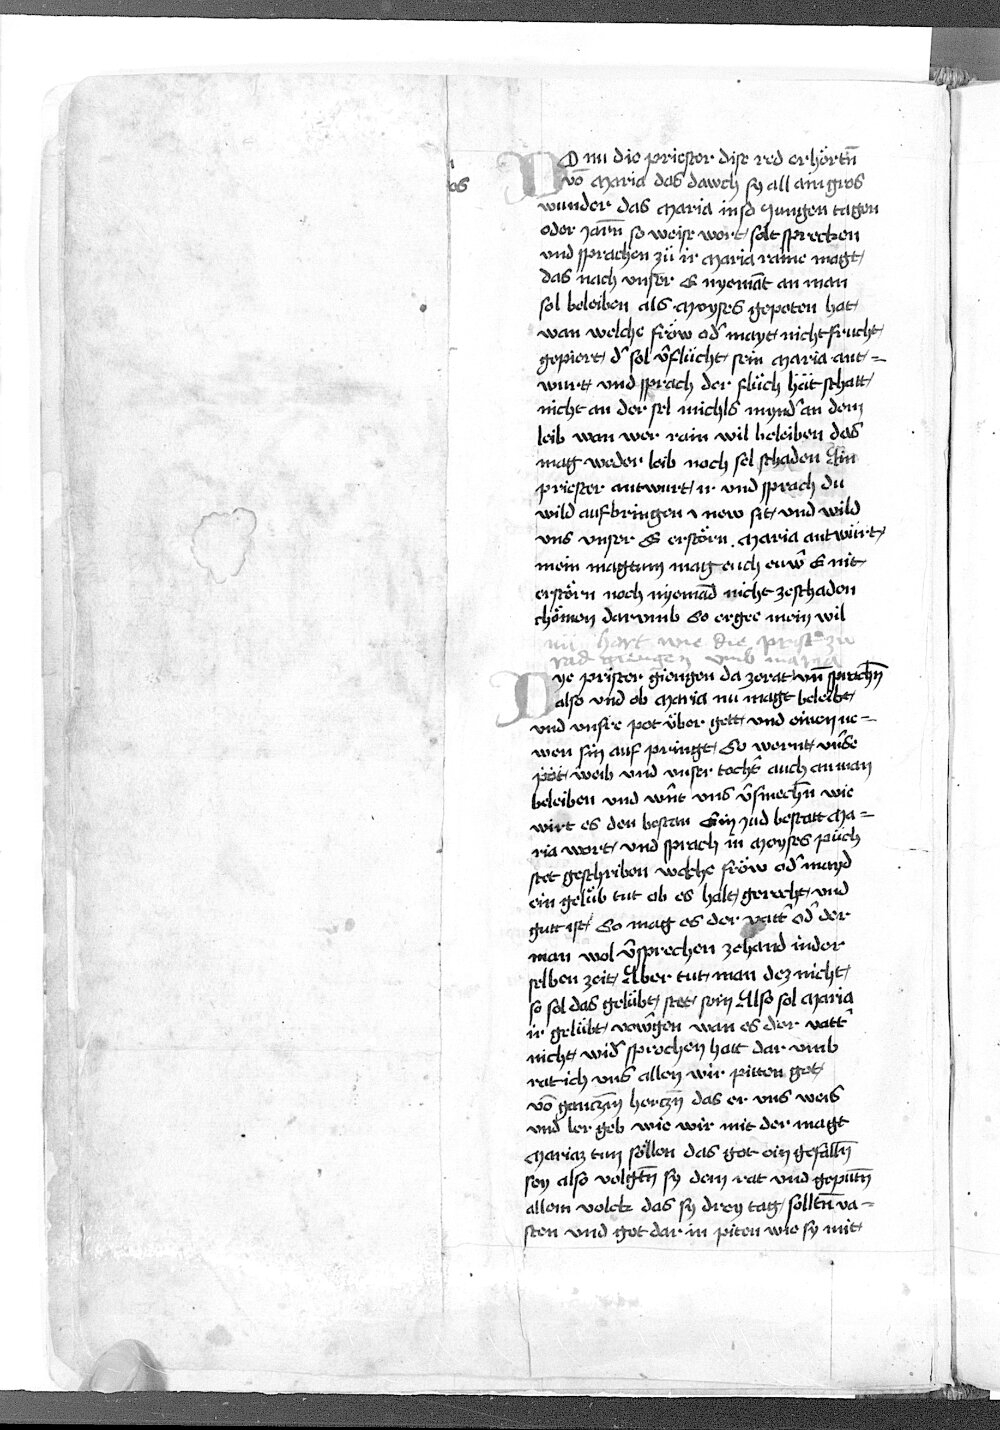 DO nu die priester dise red erhörtn̄
vō Maria das dawch sy all ain gros
wunder das Maria in so Jungen tagen
oder Jarn̄ so weise wort solt sprechen
und sprachen zü ir Maria raine magt
das nach unser E nyemāt an man
sol beleiben als Moyses gepoten hat
wan welche fröw od̄ mayt nicht frucht
gepiert d̄ sol v̄flücht sein Maria ant=
wurt und sprach der flüch hät schatt
nicht an der sel nichls mynd̄ an dem
leib wan wer rain wil beleiben das
mag weder leib noch sel schaden Ain
priester antwurt ir und sprach du
wild aufbringen i new sit und wild
uns unser E erstörn. Maria antwürt
mein magtum mag euch euw̄ E nit
erstörn noch nyemād nicht ze schaden
chömen darumb So ergee mein wil
nü hört wie die prist̄ zu
rad giengen umb maria
Dye prister giengen da ze rat un̄ sprachn̄
also und ob Maria nu magt beleibt
und unsre pot über gett und einen ne=
wen sin auf pringt So wernt uns̄e
pöt weib und unser tocht̄ auch an man
beleiben und wn̄t uns v̄smechn̄ wie
wirt es den bestan Ein Jud bestatt Ma=
ria wort und sprach in Moyses püch
stet geschriben welche fröw od̄ mayd
ein gelüb tut ob es halt gerecht und
gutt ist So mag es der vatt̄ od̄ der
man wol v̄sprechen zehand in der
selben zeit Aber tut man dez nicht
so sol das gelübt stet sein Also sol Maria
ir gelübt vow̄gen wan es der vatt̄
nicht wid̄ sprochen hatt dar umb
rat ich uns allen wir pitten got
vō ganczm̄ herczn̄ das er uns weis
und ler geb wie wir mit der magt
Mariaz tun söllen das got ein gefalln̄
sey also volgtn̄ sy dem rat und geputn̄
allem volck das sy drey tag solltn̄ va=
sten und got dar in piten wie sy mit